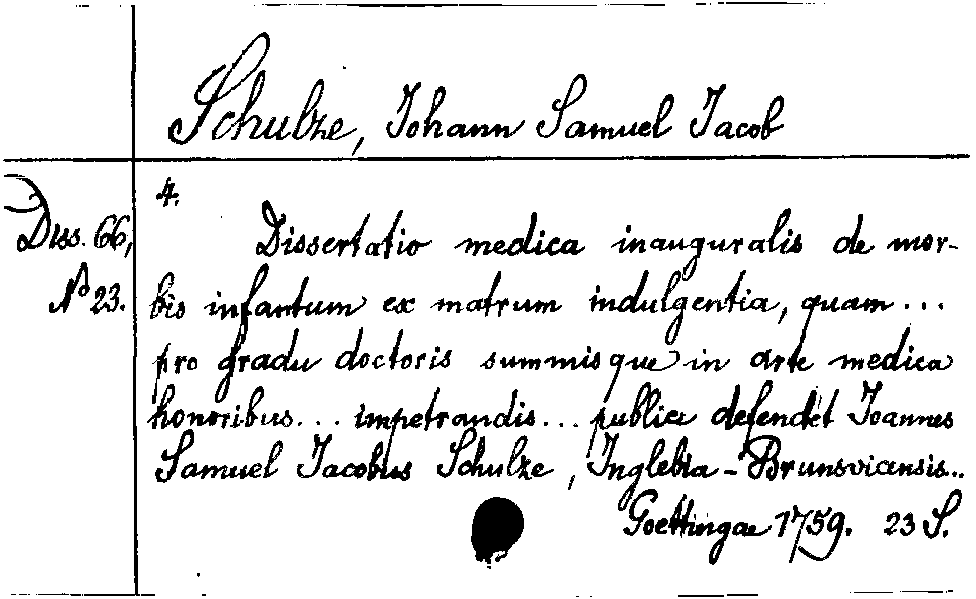 Schulze, Johann Samuel Jacob
4.
Diss. 66,
No 23.
Dissertatio medica inauguralis de mor-
bis infantum ex matrum indulgentia, quam...
pro gradu doctoris summisque in arte medica
honoribus... impetrandis... publice defendet Joannes
Samuel Jacobus Schulze, Inglebia-Brunsvicensis...
Goettingae 1759. 23 S.